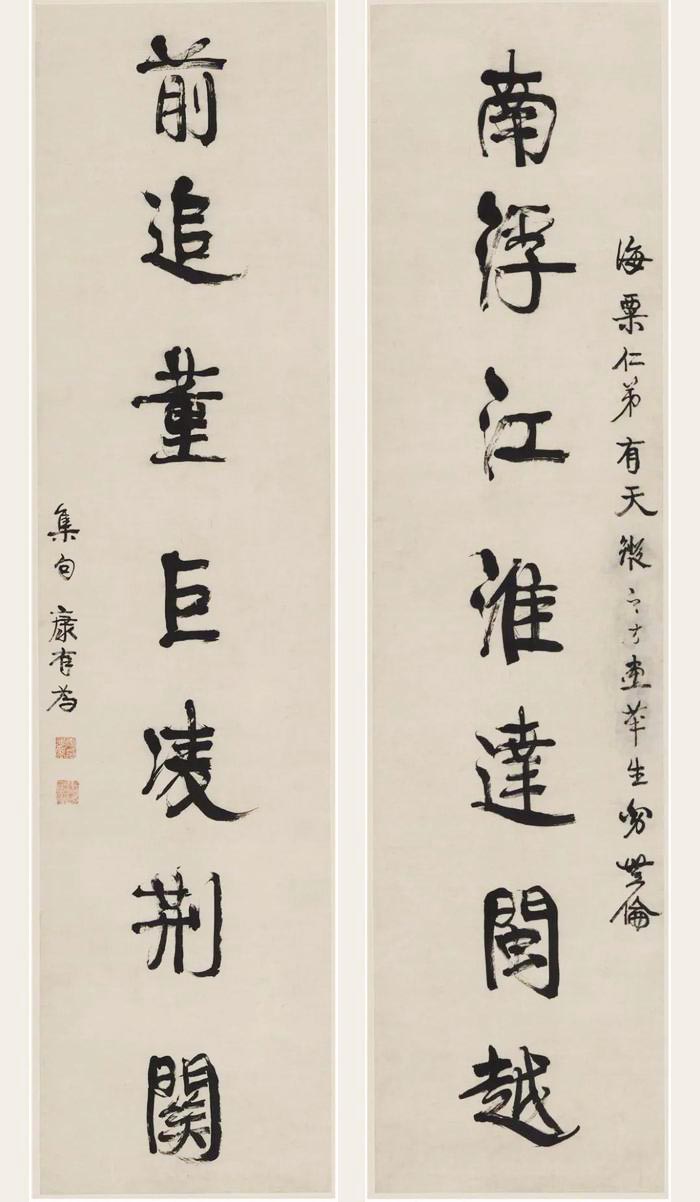 海粟仁弟有天縱之才畫筆生勢無倫
南浮江淮達閩越
前追董巨凌荆關
集句 康有為